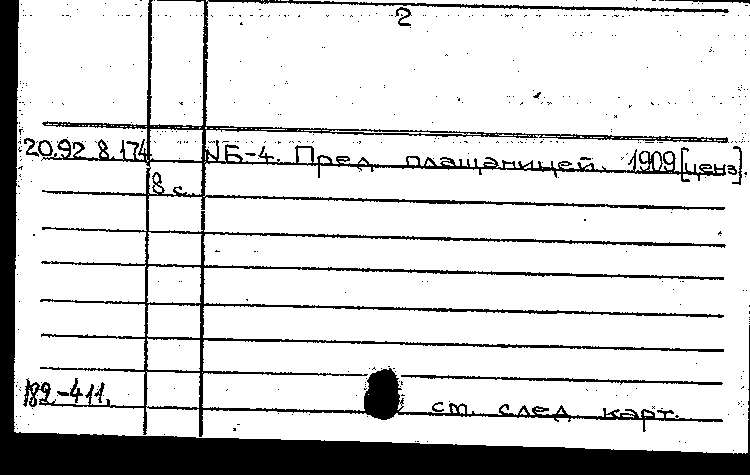 2
20.92.8.174. NБ-4. Пред плащаницей. 1909 [ценз].
8 с.
182-411. см. след карт.